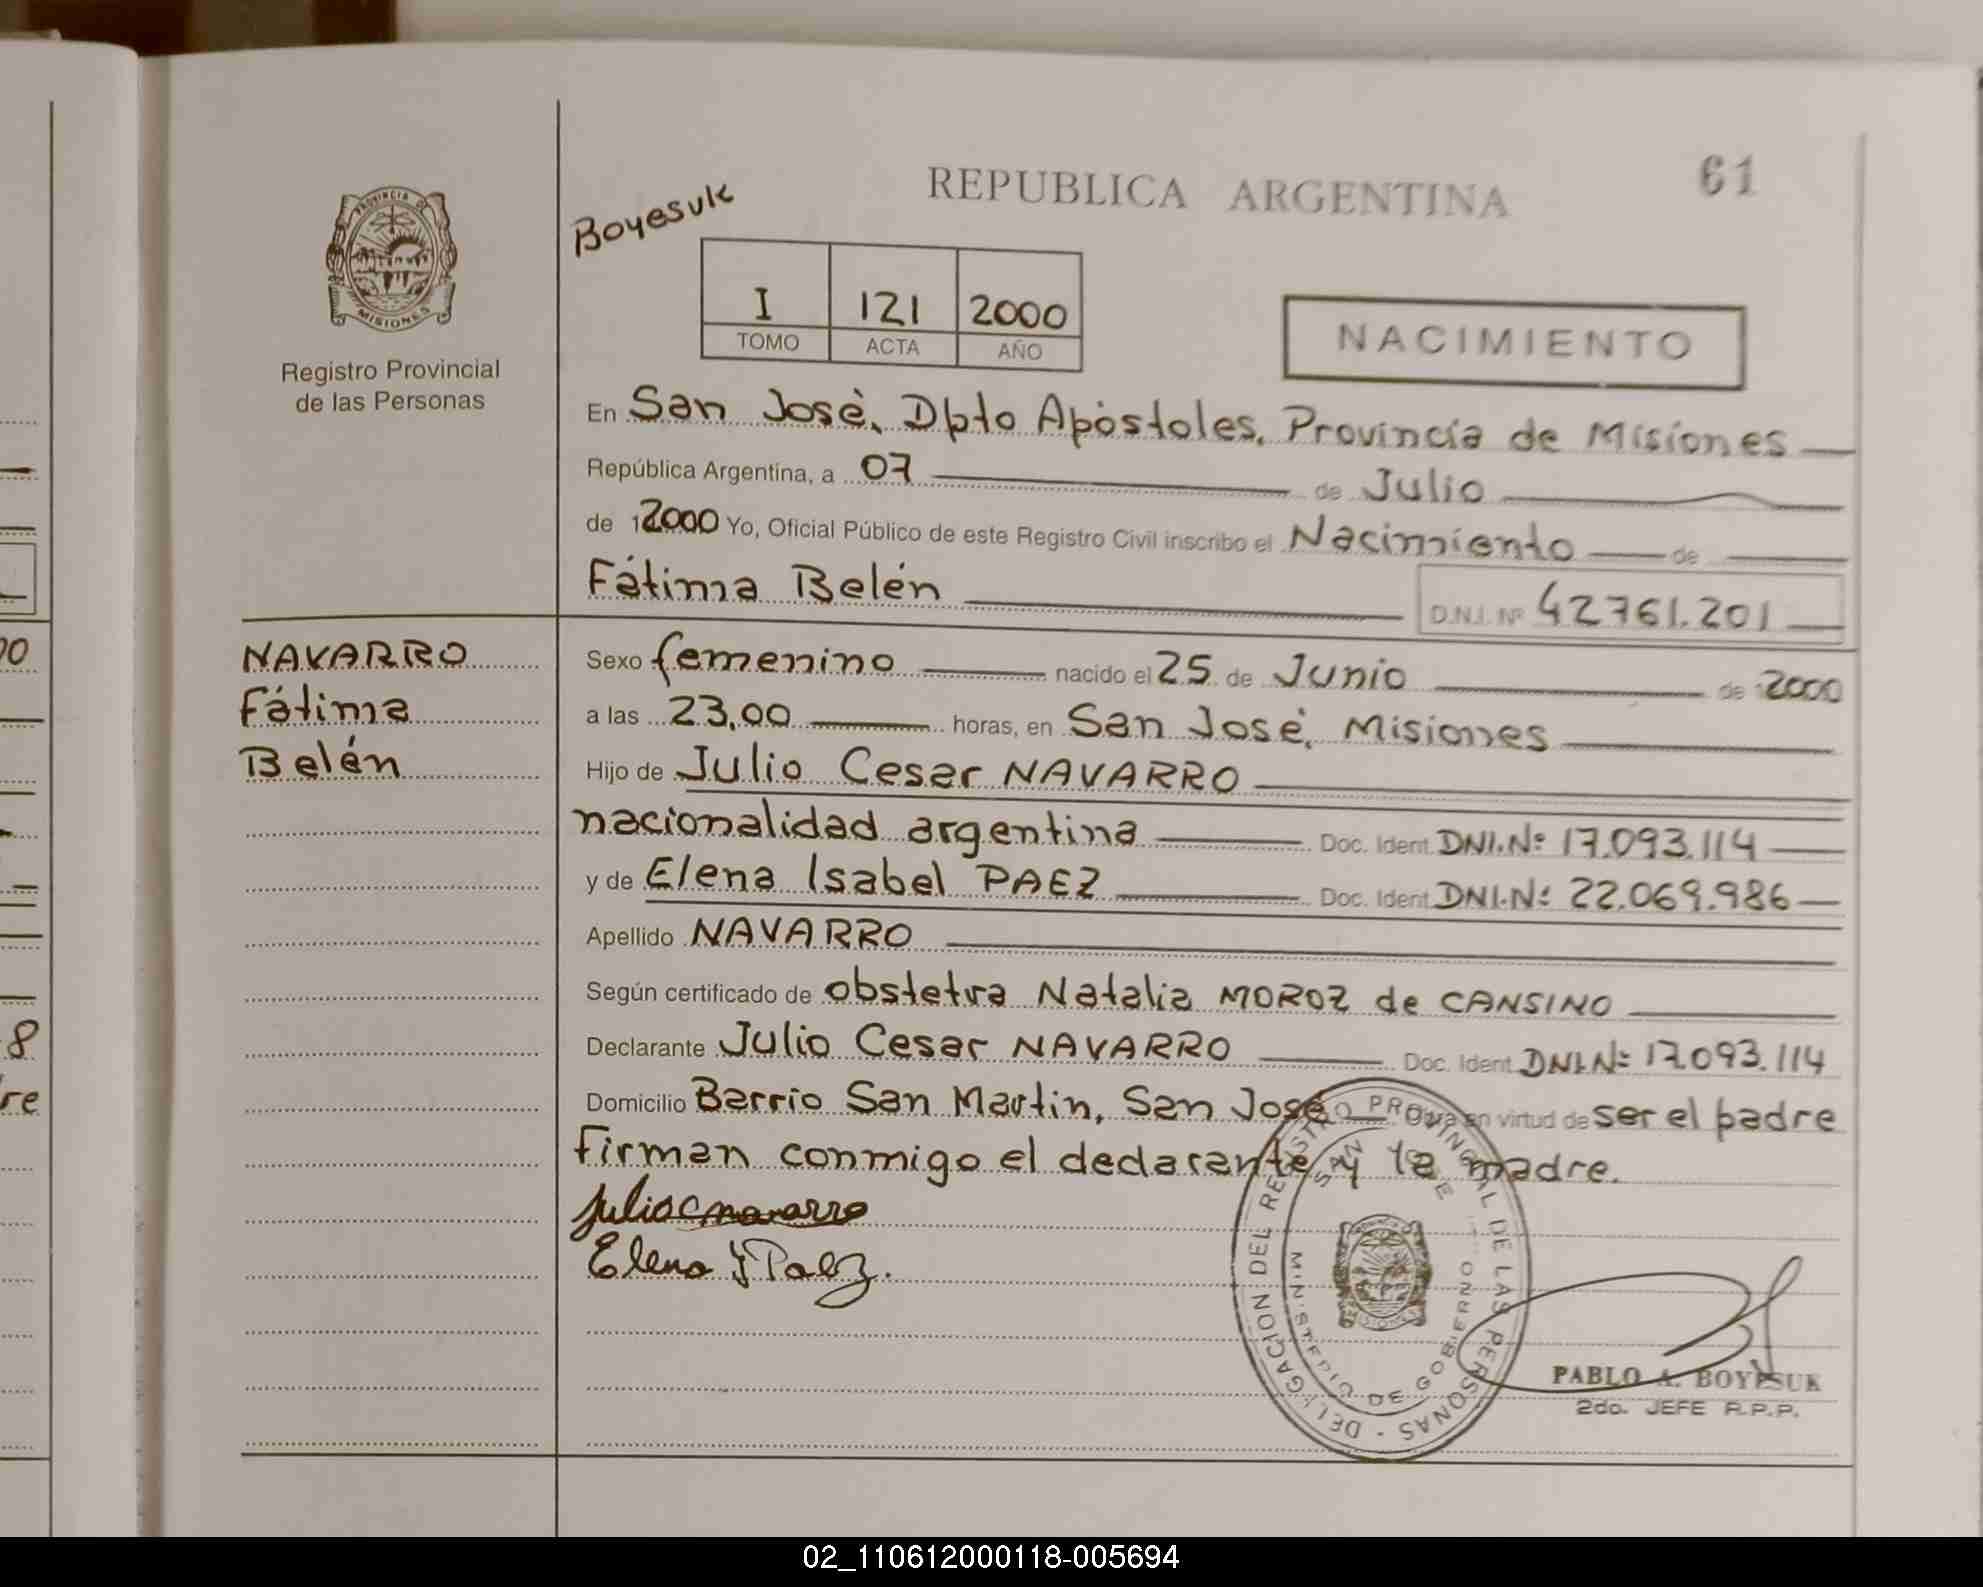 61
REPUBLICA ARGENTINA
Boyesuk
PROVINCIA DE
MISIONES
I 121 2000
TOMO ACTA AÑO
NACIMIENTO
Registro Provincial
de las Personas
En San José, Dpto Apóstoles, Provincia de Misiones
República Argentina, a 07 de Julio
de 12000 Yo, Oficial Público de este Registro Civil inscribo el Nacimiento de
Fátima Belén D.N.I. Nº 42761.201
NAVARRO
Fátima
Belén
Sexo femenino nacido el 25 de Junio de 2000
a las 23,00 horas, en San José, Misiones
Hijo de Julio Cesar NAVARRO
nacionalidad argentina Doc. Ident. DNI.Nº 17.093.114
y de Elena Isabel PAEZ Doc. Ident. DNI.Nº 22.069.986
Apellido NAVARRO
Según certificado de obstetra Natalia MOROZ de CANSINO
Declarante Julio Cesar NAVARRO Doc. Ident. DNI.Nº 17.093.114
Domicilio Barrio San Martin, San José Obra en virtud de ser el padre
firman conmigo el declarante y la madre.
Julio C navarro
Elena I Paez.
DELEGACION DEL REGISTRO PROVINCIAL DE LAS PERSONAS
SAN JOSE
MINISTERIO DE GOBIERNO
PABLO A. BOYESUK
2do. JEFE R.P.P.
00
8
re
02_110612000118-005694